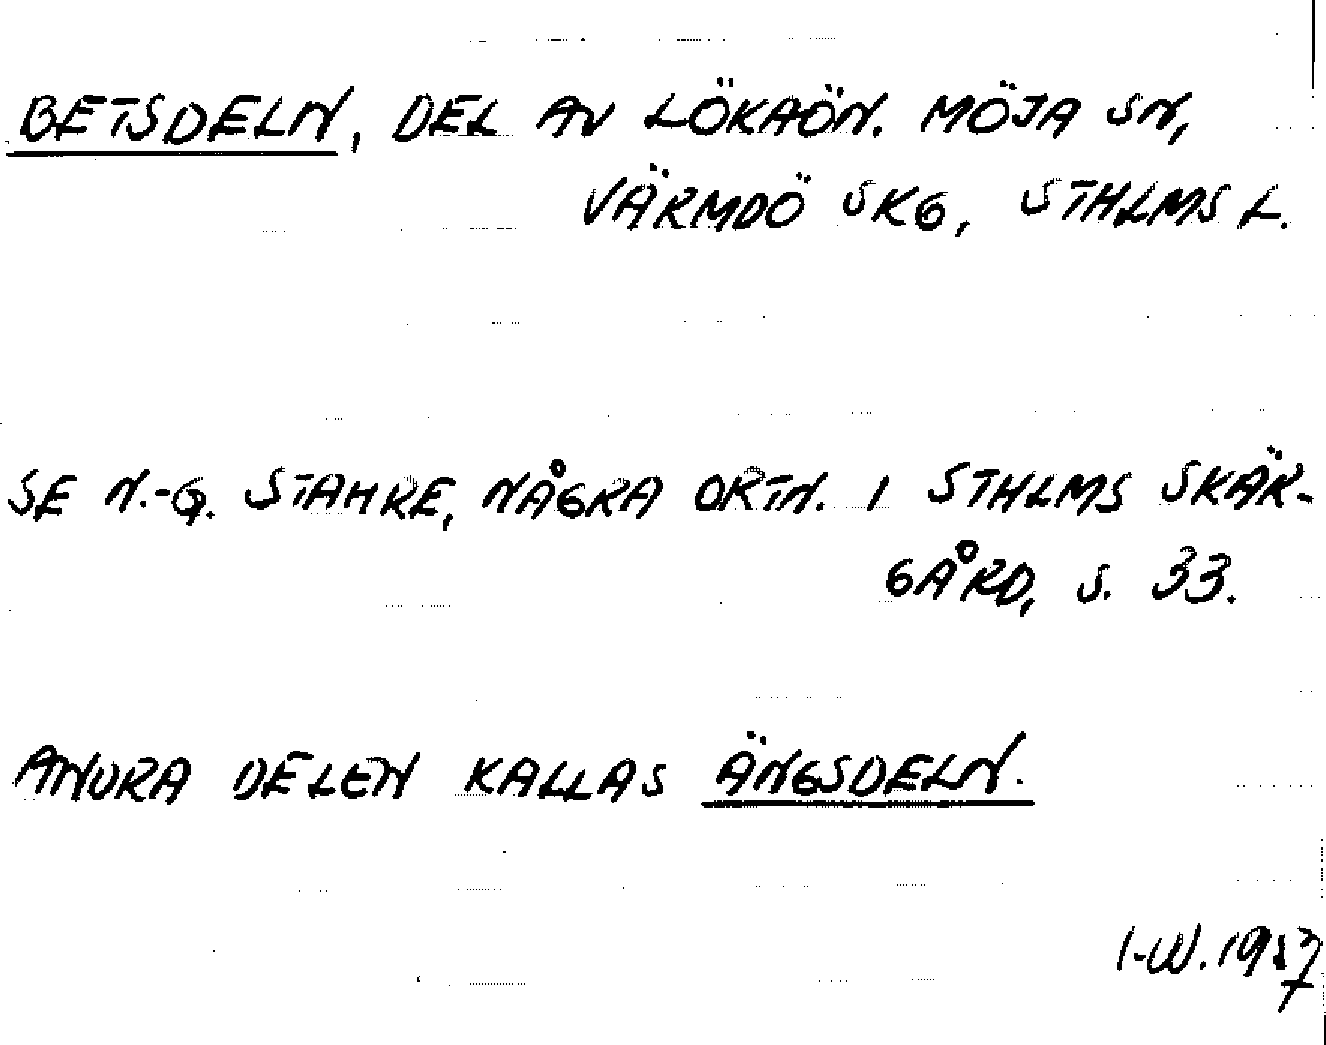 BETSDELN, DEL AV LÖKAÖN. MÖJA SN,
VÄRMDÖ SKG, STHLMS L.
SE N.-G. STAHRE, NÅGRA ORTN. I STHLMS SKÄR-
GÅRD, S. 33.
ANDRA DELEN KALLAS ÄNGSDELN.
I-W. 1957